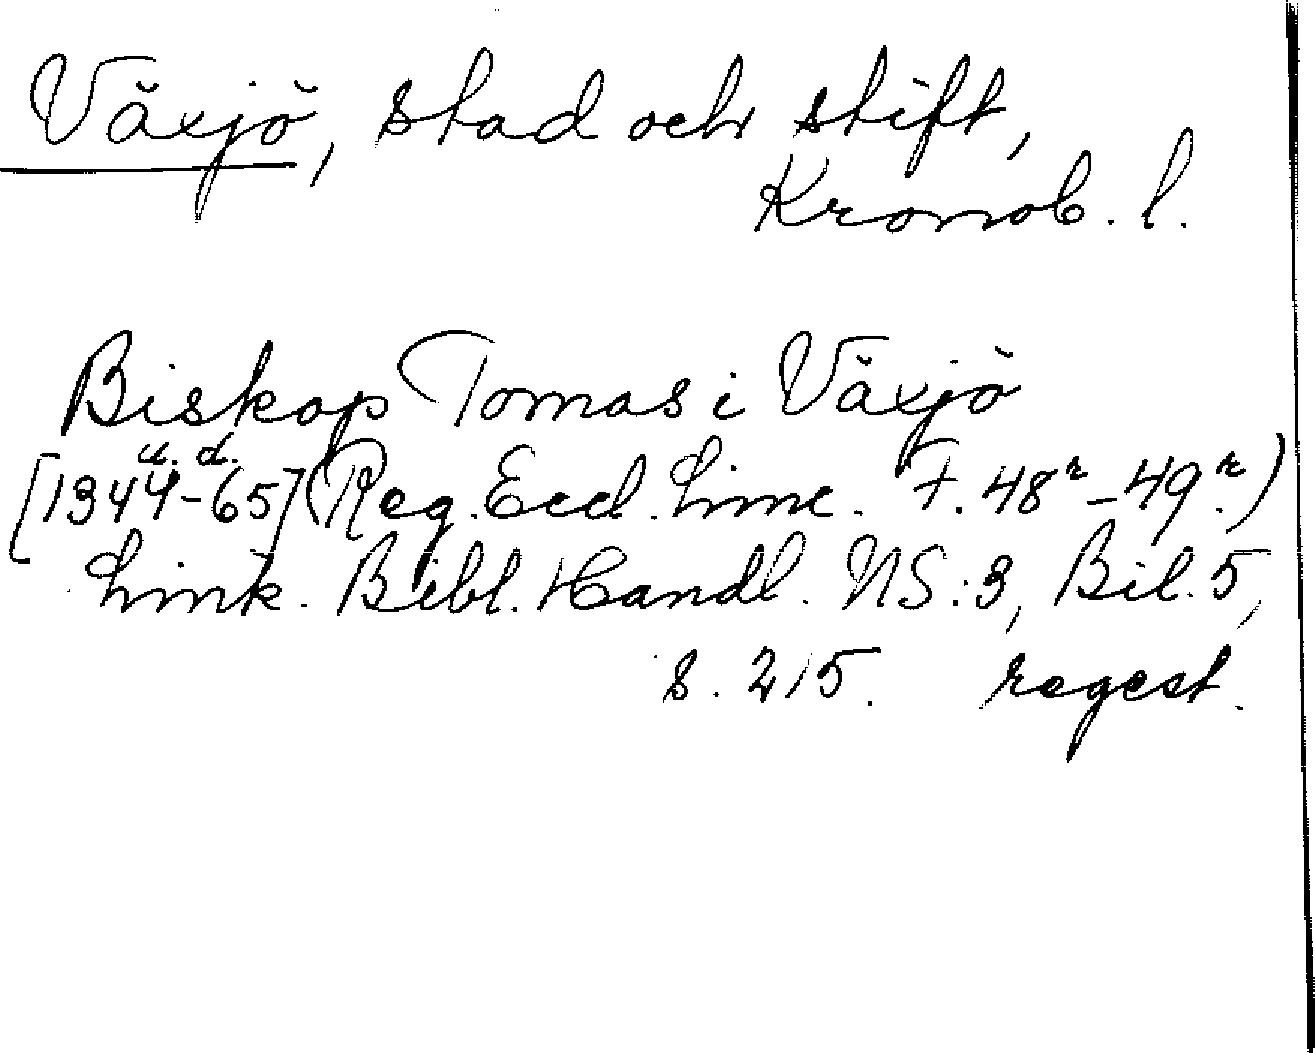 Växjö, stad och stift,
Kronob. l.
Biskop Tomas i Växjö
u. d.
[1344-65] (Reg. Eccl. Linc. F. 48r-49r.)
Link. Bibl. Handl. NS:3, Bil. 5,
s. 215. regest.